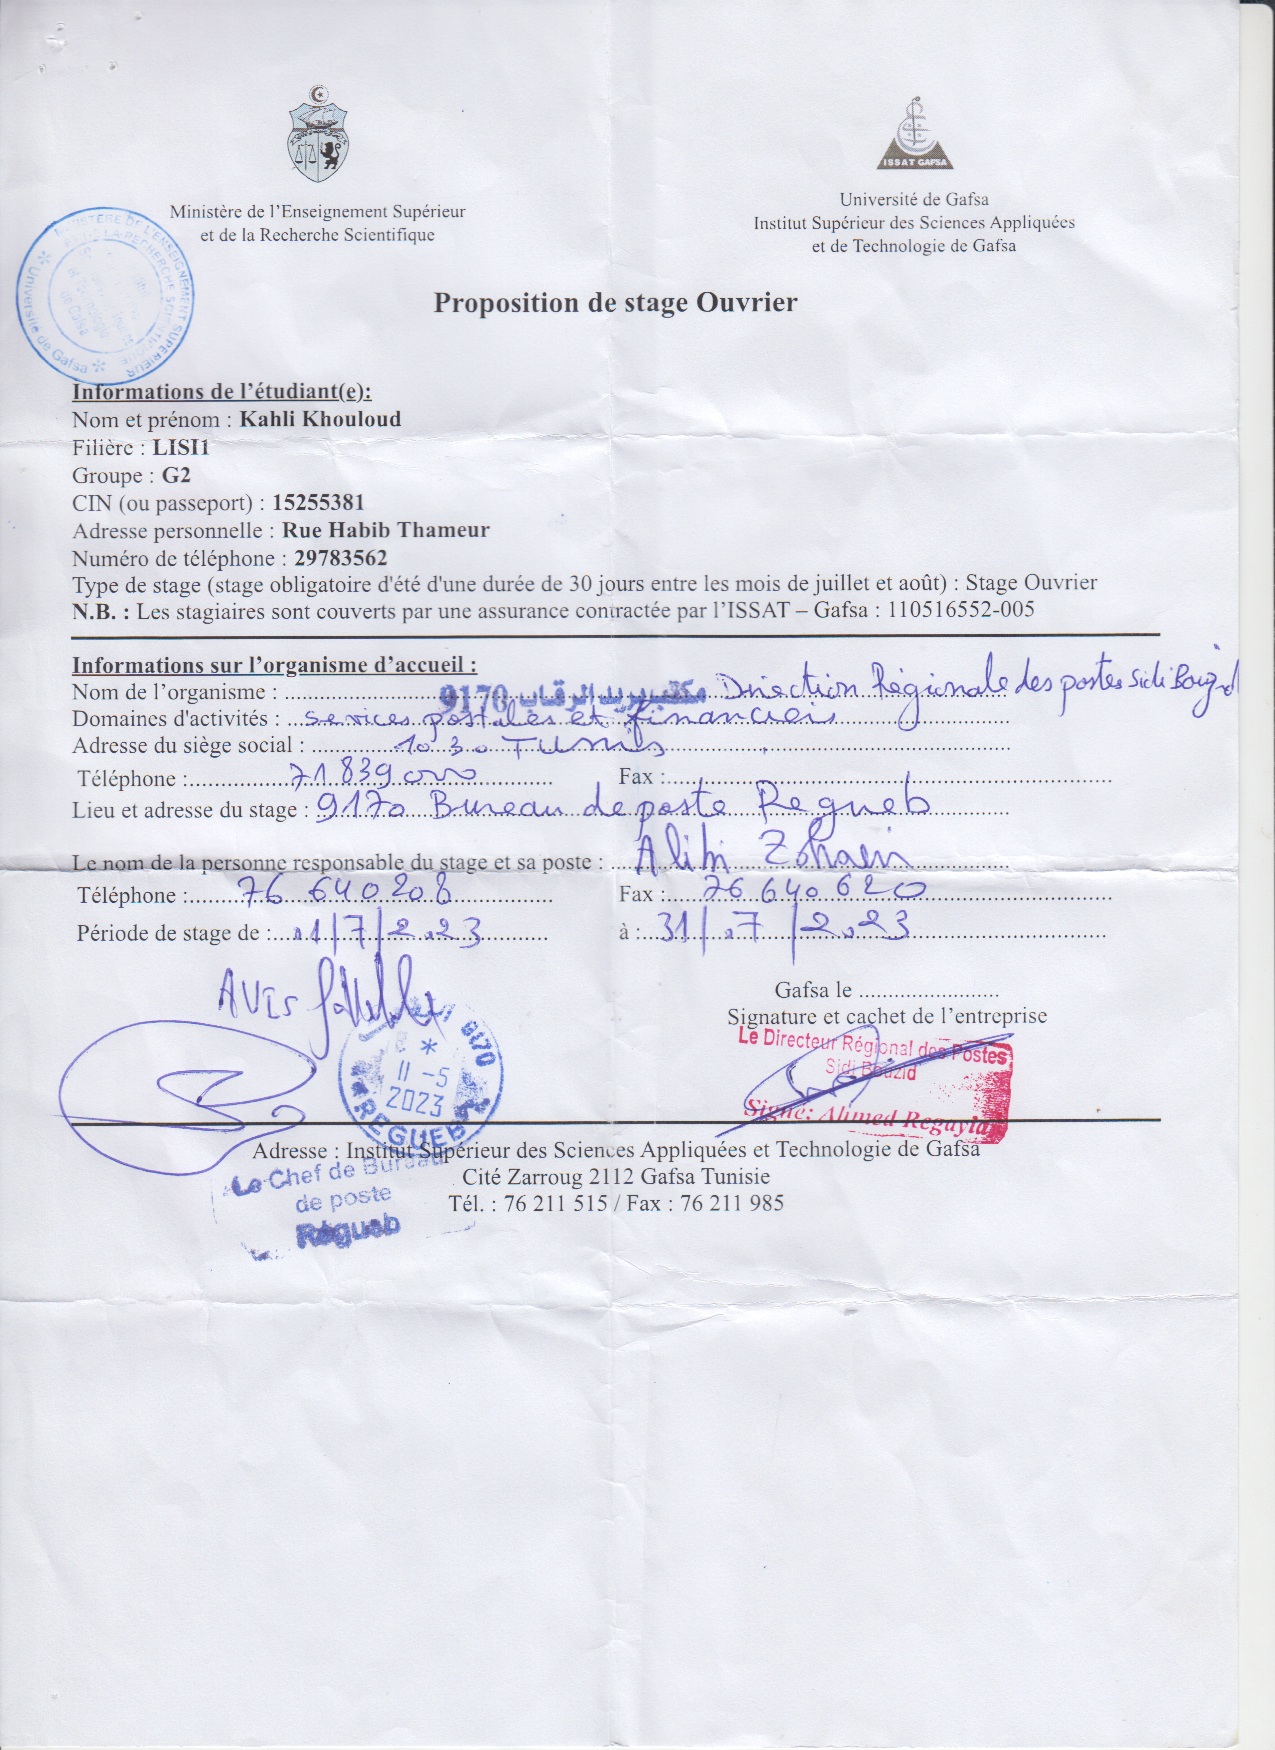 ISSAT GAFSA
Ministère de l'Enseignement Supérieur
et de la Recherche Scientifique
Université de Gafsa
Institut Supérieur des Sciences Appliquées
et de Technologie de Gafsa
MINISTERE DE L'ENSEIGNEMENT SUPERIEUR
ET DE LA RECHERCHE SCIENTIFIQUE
Université de Gafsa
Proposition de stage Ouvrier
Informations de l'étudiant(e):
Nom et prénom : Kahli Khouloud
Filière : LISI1
Groupe : G2
CIN (ou passeport) : 15255381
Adresse personnelle : Rue Habib Thameur
Numéro de téléphone : 29783562
Type de stage (stage obligatoire d'été d'une durée de 30 jours entre les mois de juillet et août) : Stage Ouvrier
N.B. : Les stagiaires sont couverts par une assurance contractée par l'ISSAT – Gafsa : 110516552-005
Informations sur l'organisme d'accueil :
Nom de l'organisme : مكتب بريد الرقاب 9170 Direction Régionale des postes Sidi Bouzid
Domaines d'activités : services postales et financiers
Adresse du siège social : 1030 Tunis
Téléphone : 71 839 000 Fax :
Lieu et adresse du stage : 9170 Bureau de poste Regueb
Le nom de la personne responsable du stage et sa poste : Alibi
Téléphone : 76 640 208 Fax : 76 640 620
Période de stage de : 01/7/2023 à : 31/07/2023
Avis
Gafsa le
Signature et cachet de l'entreprise
Le Directeur Régional des Postes
Sidi Bouzid
Signé: Ahmed
9170
11 -5
2023
REGUEB
Adresse : Institut Supérieur des Sciences Appliquées et Technologie de Gafsa
Cité Zarroug 2112 Gafsa Tunisie
Tél. : 76 211 515 / Fax : 76 211 985
Le Chef de Bureau
de poste
Régueb